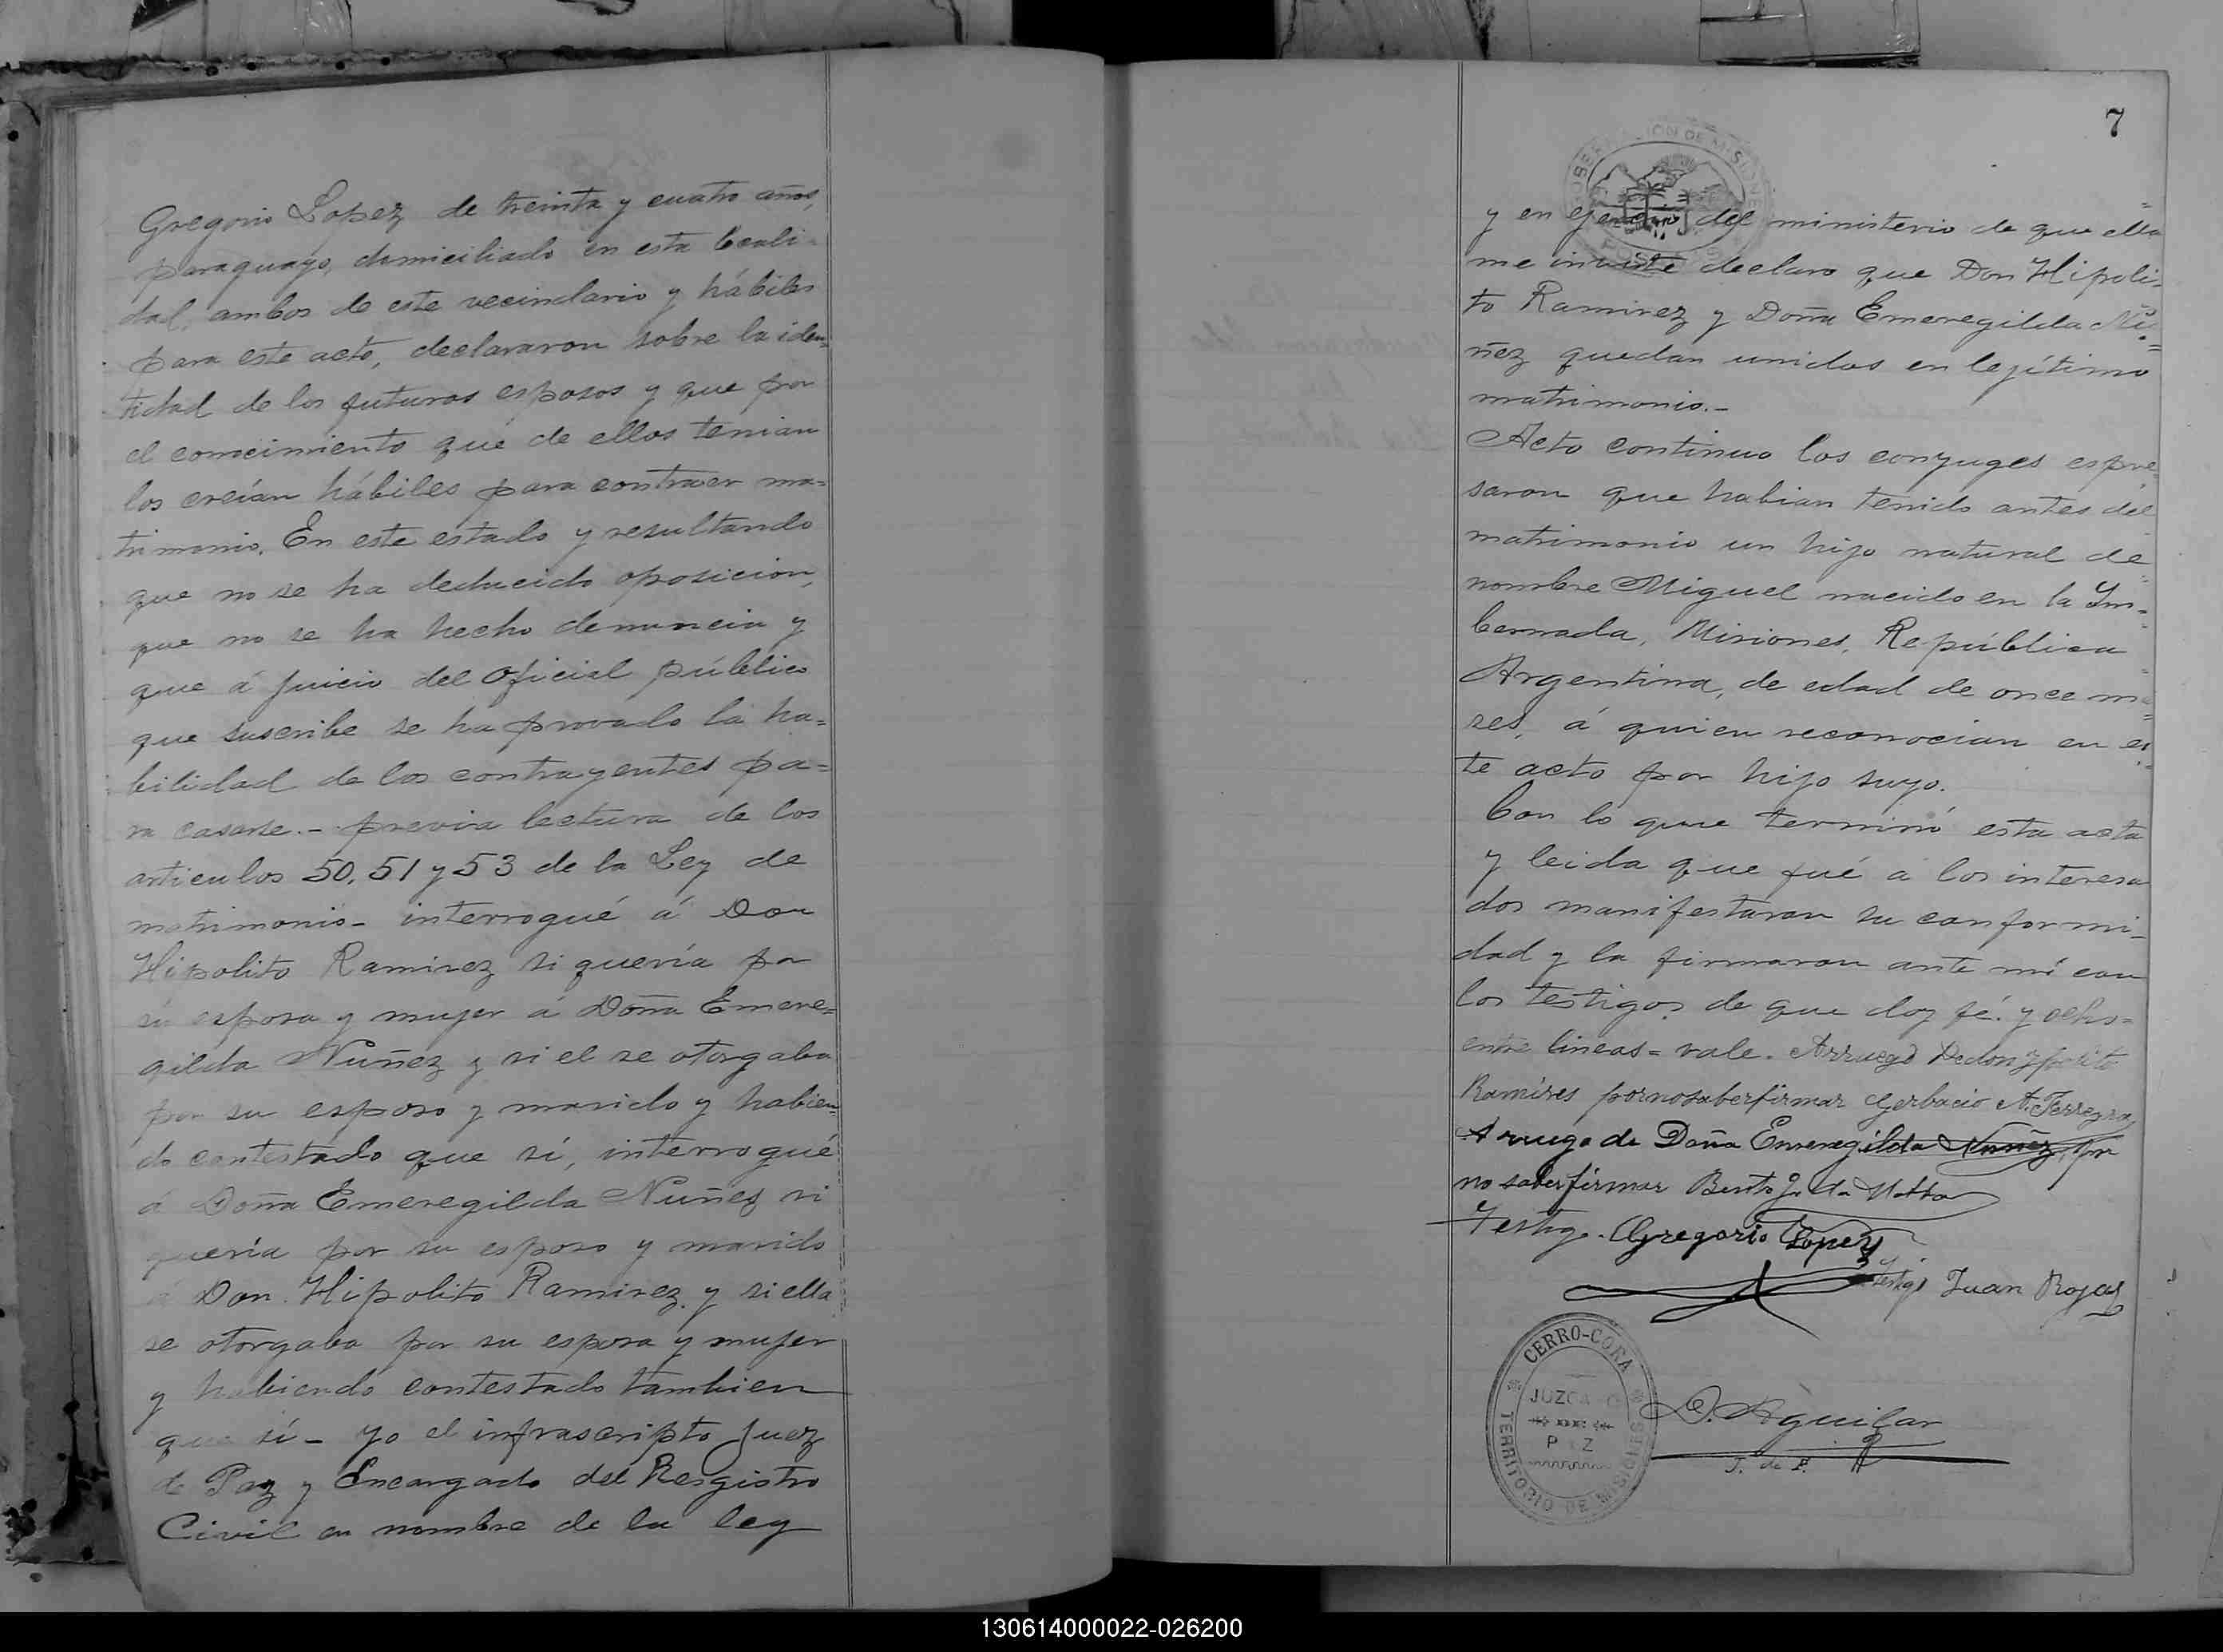 Gregorio Lopez de treinta y cuatro años,
paraguayo, domiciliado en esta locali-
dad, ambos de este vecindario y hábiles
para este acto, declararon sobre la iden=
tidad de los futuros esposos y que por
el conocimiento que de ellos tenian
los creían hábiles para contraer ma=
trimonio. En este estado y resultando
que no se ha deducido oposicion,
que no se ha hecho denuncia y
que á juicio del oficial público
que suscribe se ha provado la ha=
bilidad de los contrayentes pa=
ra casarse.- previa lectura de los
articulos 50, 51 y 53 de la Ley de
matrimonio- interrogué á Don
Hipolito Ramirez si quería por
su esposa y mujer á Doña Emere=
gilda Nuñez y si el se otorgaba
por su esposo y marido y habien=
do contestado que sí, interrogué
á Doña Emeregilda Nuñez si
quería por su esposo y marido
á Don Hipolito Ramirez y si ella
se otorgaba por su esposa y mujer
y habiendo contestado tambien
que sí - yo el infrascripto Juez
de Paz y Encargado del Resgistro
Civil en nombre de la ley
7
GOBERNACION DE MISIONES
POSADAS
y en ejercicio del ministerio de que ella
me inviste declaro que Don Hipoli-
to Ramirez y Doña Emeregilda Nú=
ñez quedan unidos en legítimo
matrimonio.-
Acto continuo los conyuges espre
saron que habian tenido antes del
matrimonio un hijo natural de
nombre Miguel nacido en la Im-
bernada, Misiones, República
Argentina, de edad de once me
ses, á quien reconocian en es
te acto por hijo suyo.
Con lo que terminó esta acta
y leida que fué á los interesa
dos manifestaron su conformi-
dad y la firmaron ante mí con
los testigos de que doy fé. y ocho=
entre lineas = vale. Arruego Dedon Ypolito
Ramires pornosaberfirmar Gerbacio A. Ferreyra
Arruego de Doña Emeregilda Nuñez, por
no saber firmar Bento J. da Motta
Testigo. Gregorio Lopez
y
testigo Juan Rojas
CERRO-CORA
JUZGADO
DE
PAZ
TERRITORIO DE MISIONES
D. Aguilar
J. de P.
130614000022-026200